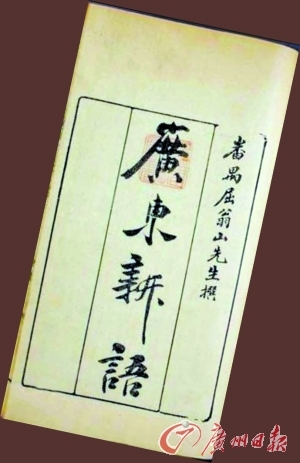 番禺屈翁山先生撰
廣東新語
廣州日报